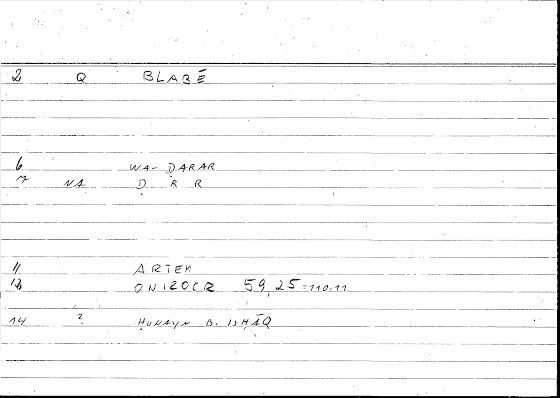 2 Q BLABĒ
6 WA-ḌARAR
7 NA Ḍ R R
11 ARTEM
12 ONIROCR 59,25=110.11
14 ? ḤUNAYN B. ISḤĀQ